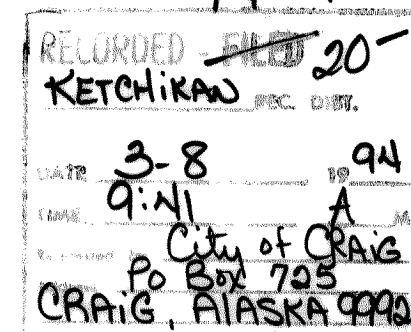 RECORDED - FILED 20-
KETCHIKAN REC. DIST.
DATE 3-8 1994
TIME 9:41 A M
City of CRAiG
Po Box 725
CRAiG, AlASKA 9992